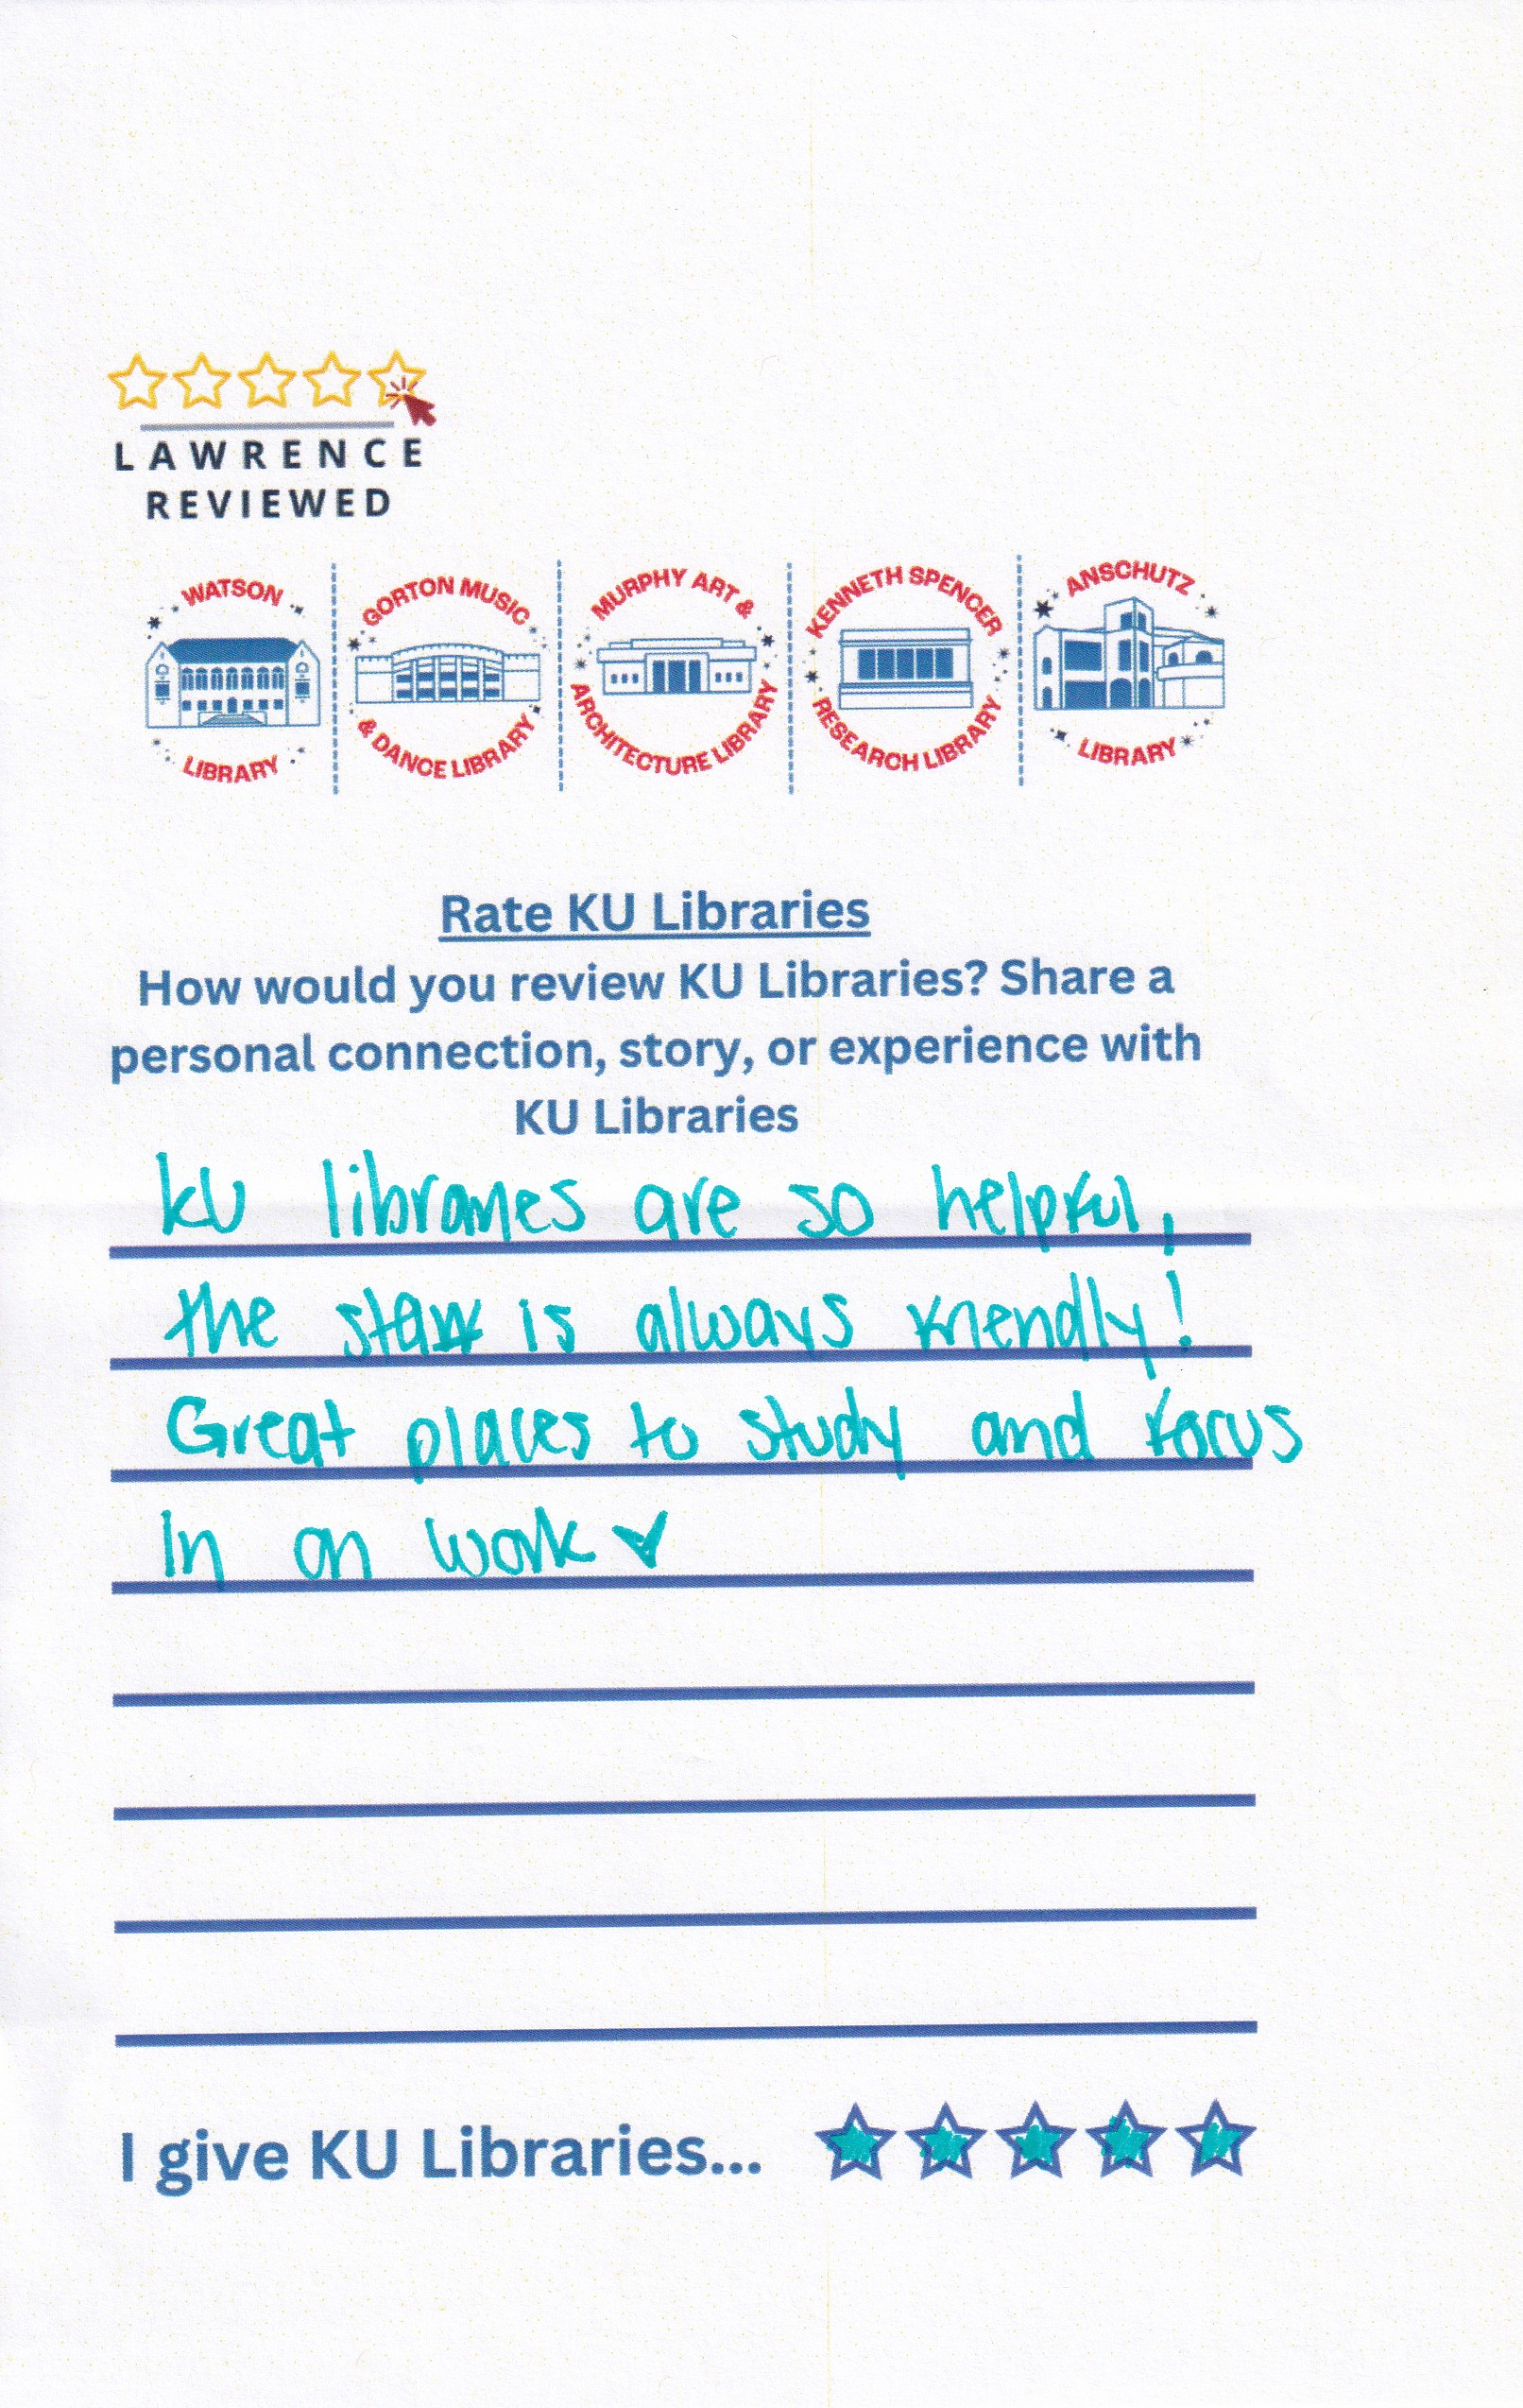 LAWRENCE
REVIEWED
WATSON
LIBRARY
GORTON MUSIC
& DANCE LIBRARY
MURPHY ART &
ARCHITECTURE LIBRARY
KENNETH SPENCER
RESEARCH LIBRARY
ANSCHUTZ
LIBRARY
Rate KU Libraries
How would you review KU Libraries? Share a
personal connection, story, or experience with
KU Libraries
KU libraries are so helpful,
the staff is always friendly!
Great places to study and focus
in on work
I give KU Libraries...